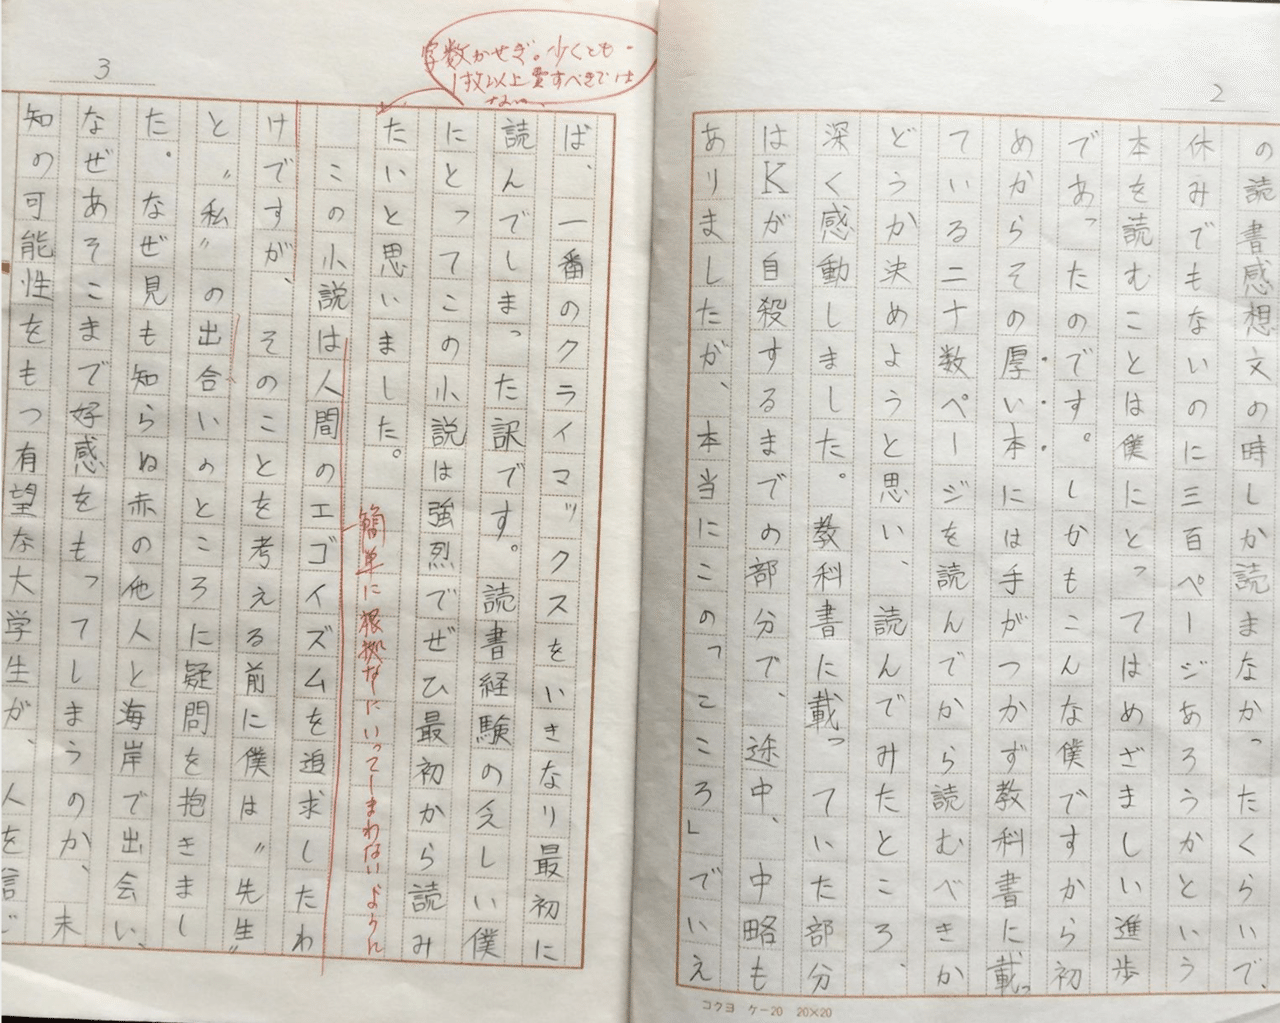 2
の読書感想文の時しか読まなかったくらいで、
休みでもないのに三百ページあろうかという
本を読むことは僕にとってはめざましい進歩
であったのです。しかもこんな僕ですから初
めからその厚い本には手がつかず教科書に載っ
ている二十数ページを読んでから読むべきか
どうか決めようと思い、読んでみたところ、
深く感動しました。教科書に載っていた部分
はKが自殺するまでの部分で、途中、中略も
ありましたが、本当にこの「こころ」でいえ
コクヨ ケー20 20×20
3
字数かせぎ。少くとも
1枚以上費すべきでは
ない。
ば、一番のクライマックスをいきなり最初に
読んでしまった訳です。読書経験の乏しい僕
にとってこの小説は強烈でぜひ最初から読み
たいと思いました。
簡単に根拠なしにいってしまわないように
この小説は人間のエゴイズムを追求したわ
けですが、そのことを考える前に僕は〝先生〟
と〝私〟の出合いのところに疑問を抱きまし
た。なぜ見も知らぬ赤の他人と海岸で出会い、
なぜあそこまで好感をもってしまうのか、未
知の可能性をもつ有望な大学生が、人を信じ